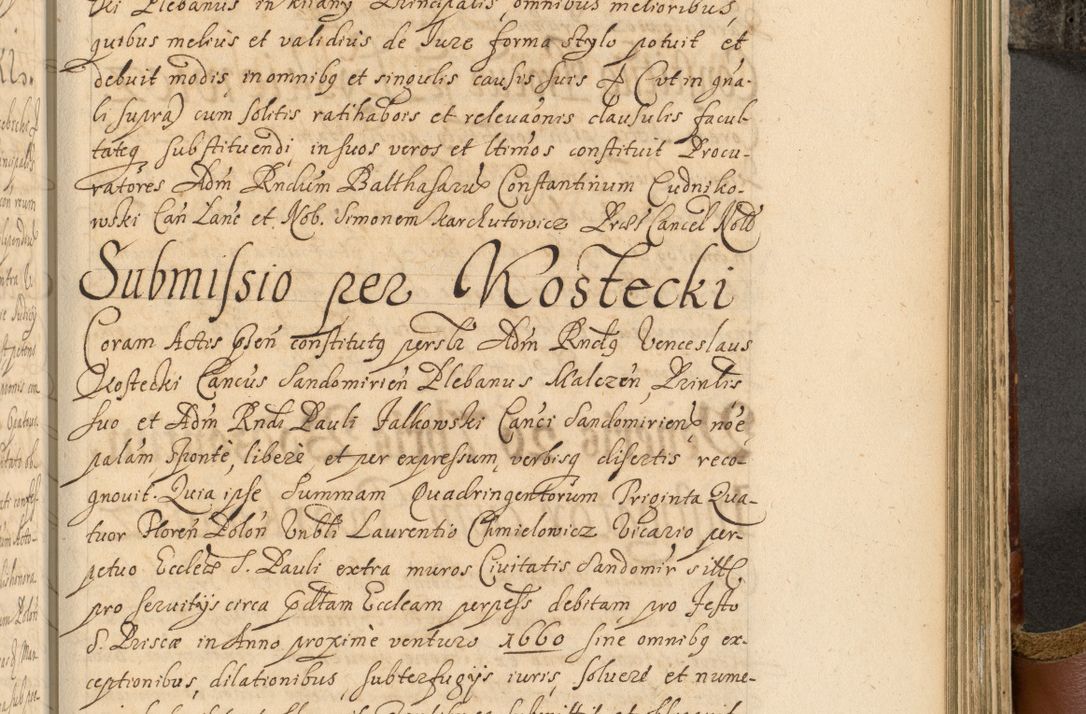 ski Plebanus in Kiiany Principalis, omnibus melioribus,
quibus melius et validius de Jure forma stylo potuit et
debuit modis, in omnibq et singulis causis suis & (vt in gna-
li supra) cum solitis ratihabois et relevaonis clausulis facul-
tateq substituendi, in suos veros et ltimos constituit Procu-
ratores Adm Rndum Balthasarum Constantinum Cudniko-
wski Can Lanc et Nob. Simonem Karchutowicz Cancel
Submissio per Rostecki
Coram Actis psen constitutq persli Adm Rndq Venceslaus
Rostecki Cancus Sandomirien Plebanus Malczen, Prinlis
suo et Adm Rndi Pauli Jalkowski Canci Sandomirien, noe
palam sponte, libere, et per expressum, verbisq disertis reco-
gnovit. Quia ipse Summam Quadringentorum Triginta Qua-
tuor Floren Polon Vnbli Laurentio Chmielowicz Vicario per-
petuo Eccleae S. Pauli extra muros Civitatis Sandomir sittae
pro servitijs circa pdtam Eccleam perpess debitam pro Festo
S. Priscae in Anno proxime venturo 1660 sine omnibq ex-
ceptionibus, dilationibus, subterfugijs iuris, solvere et nume-